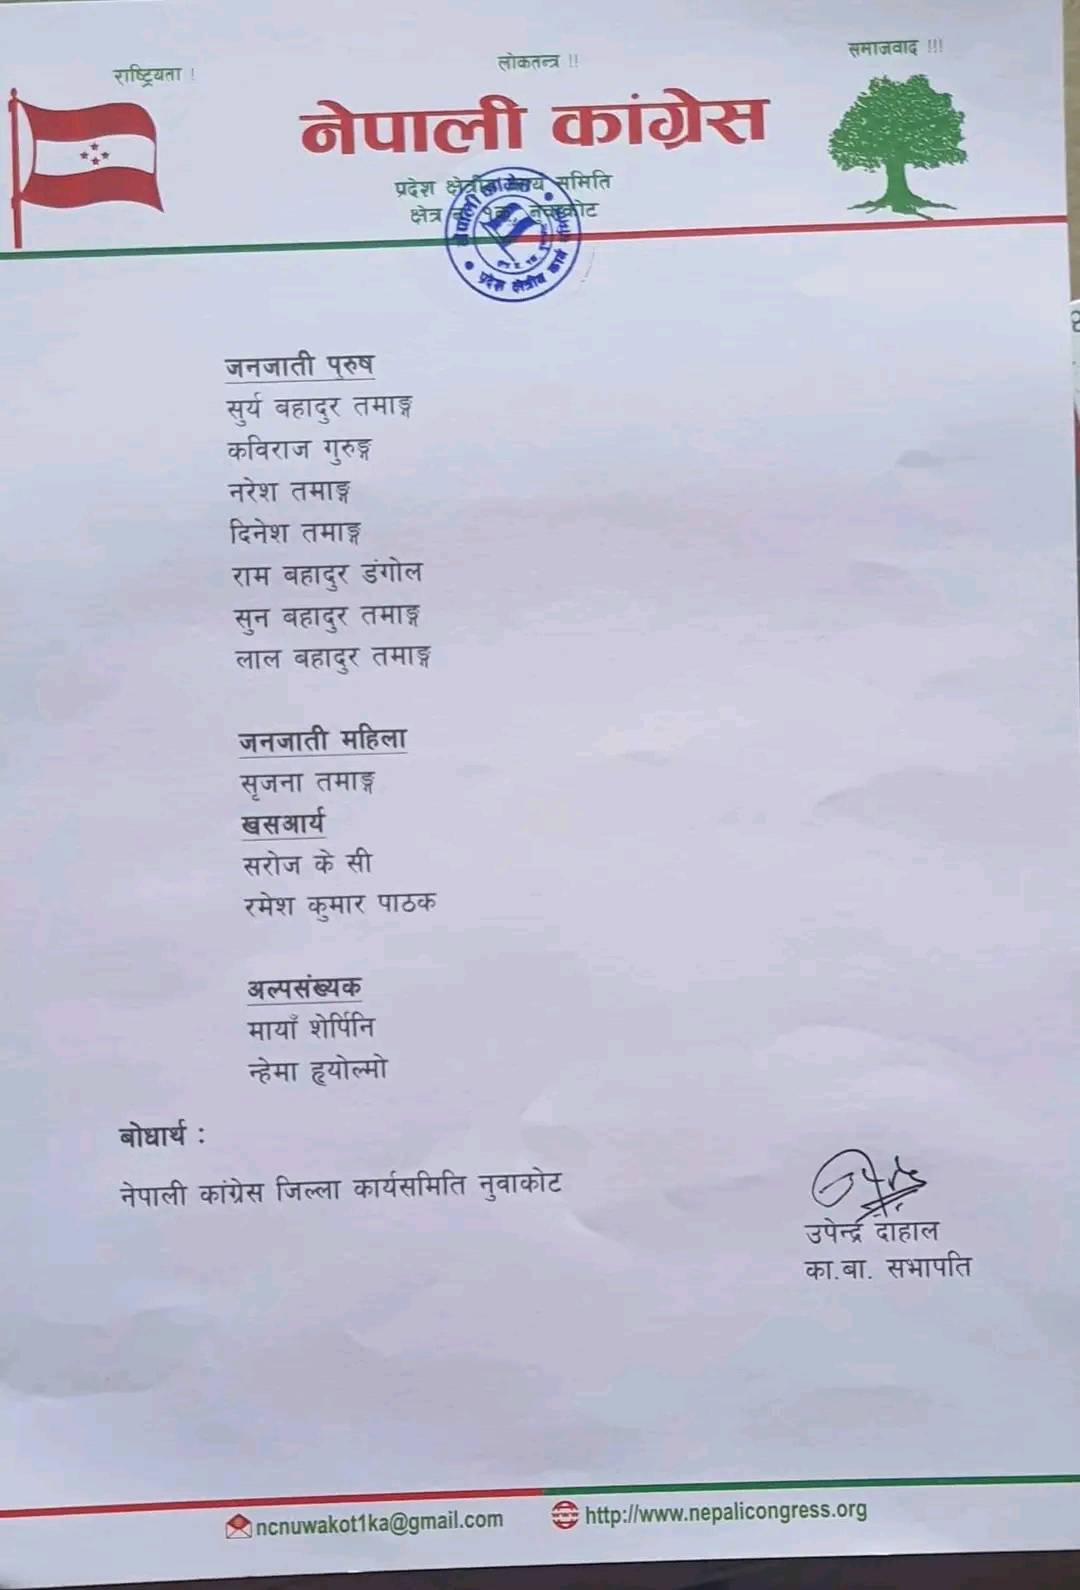 राष्ट्रियता !
लोकतन्त्र !!
समाजवाद !!!
नेपाली कांग्रेस
प्रदेश क्षेत्रीय कार्य समिति
क्षेत्र नं. १क, नुवाकोट
जनजाती पुरुष
सुर्य बहादुर तमाङ्ग
कविराज गुरुङ्ग
नरेश तमाङ्ग
दिनेश तमाङ्ग
राम बहादुर डंगोल
सुन बहादुर तमाङ्ग
लाल बहादुर तमाङ्ग
जनजाती महिला
सृजना तमाङ्ग
खसआर्य
सरोज के सी
रमेश कुमार पाठक
अल्पसंख्यक
मायाँ शेर्पिनि
न्हेमा हृयोल्मो
बोधार्थ :
नेपाली कांग्रेस जिल्ला कार्यसमिति नुवाकोट
उपेन्द्र दाहाल
का.बा. सभापति
ncnuwakot1ka@gmail.com
http://www.nepalicongress.org